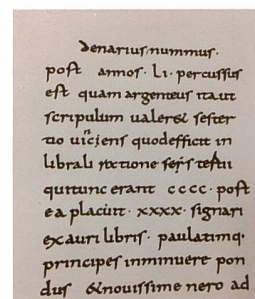 denarius nummus·
post annos· LI· percussus
est quam argenteus ita ut
scripulum valeret sester
tio viciens quod efficit in
librali ratione
qui tunc erant cccc· post
ea placuit· xxxx· signari
ex auri libris· paulatimq·
principes inminuere pon
dus & novissime nero ad